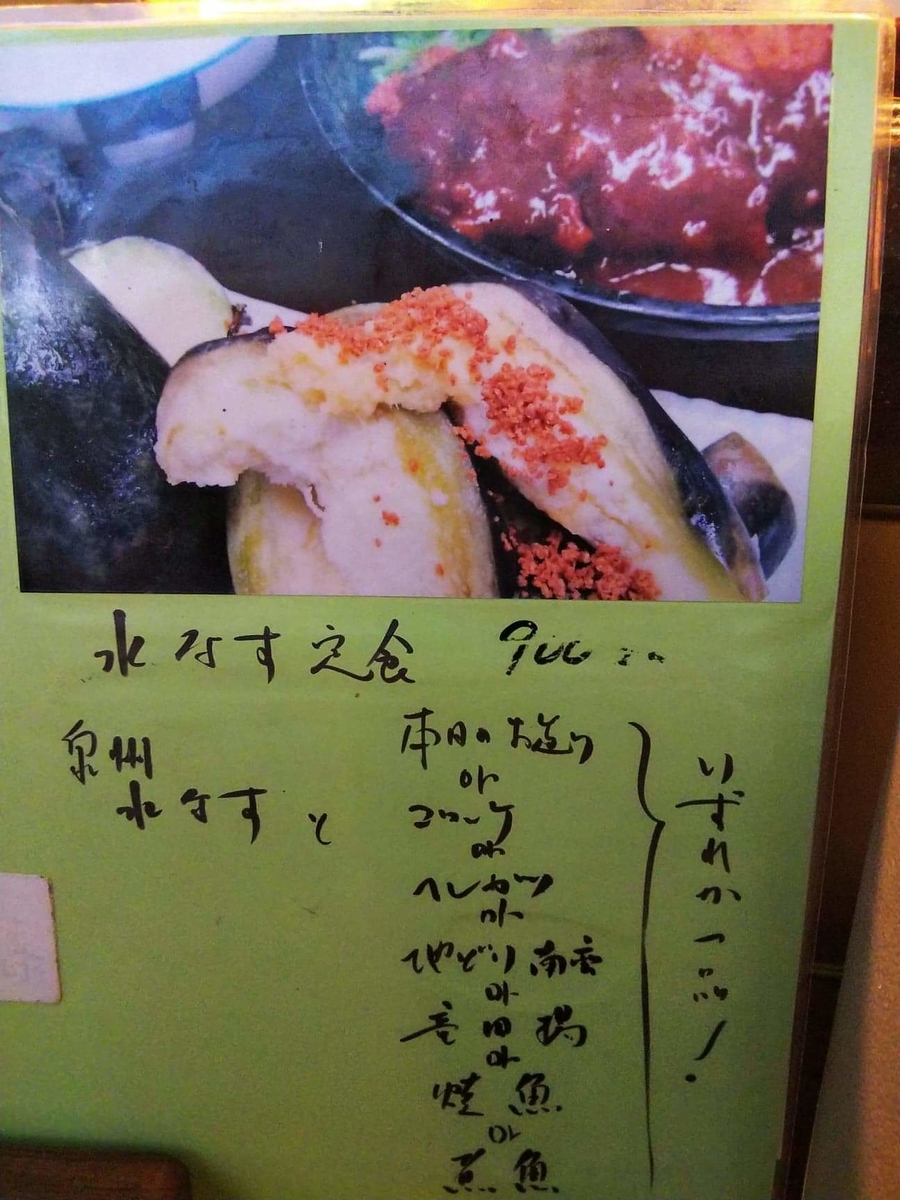 水なす定食 900
泉州
水なすと
本日のお造り
or
コロッケ
or
ヘレカツ
or
地どり南蛮
or
or
焼魚
or
煮魚
いずれか一品!